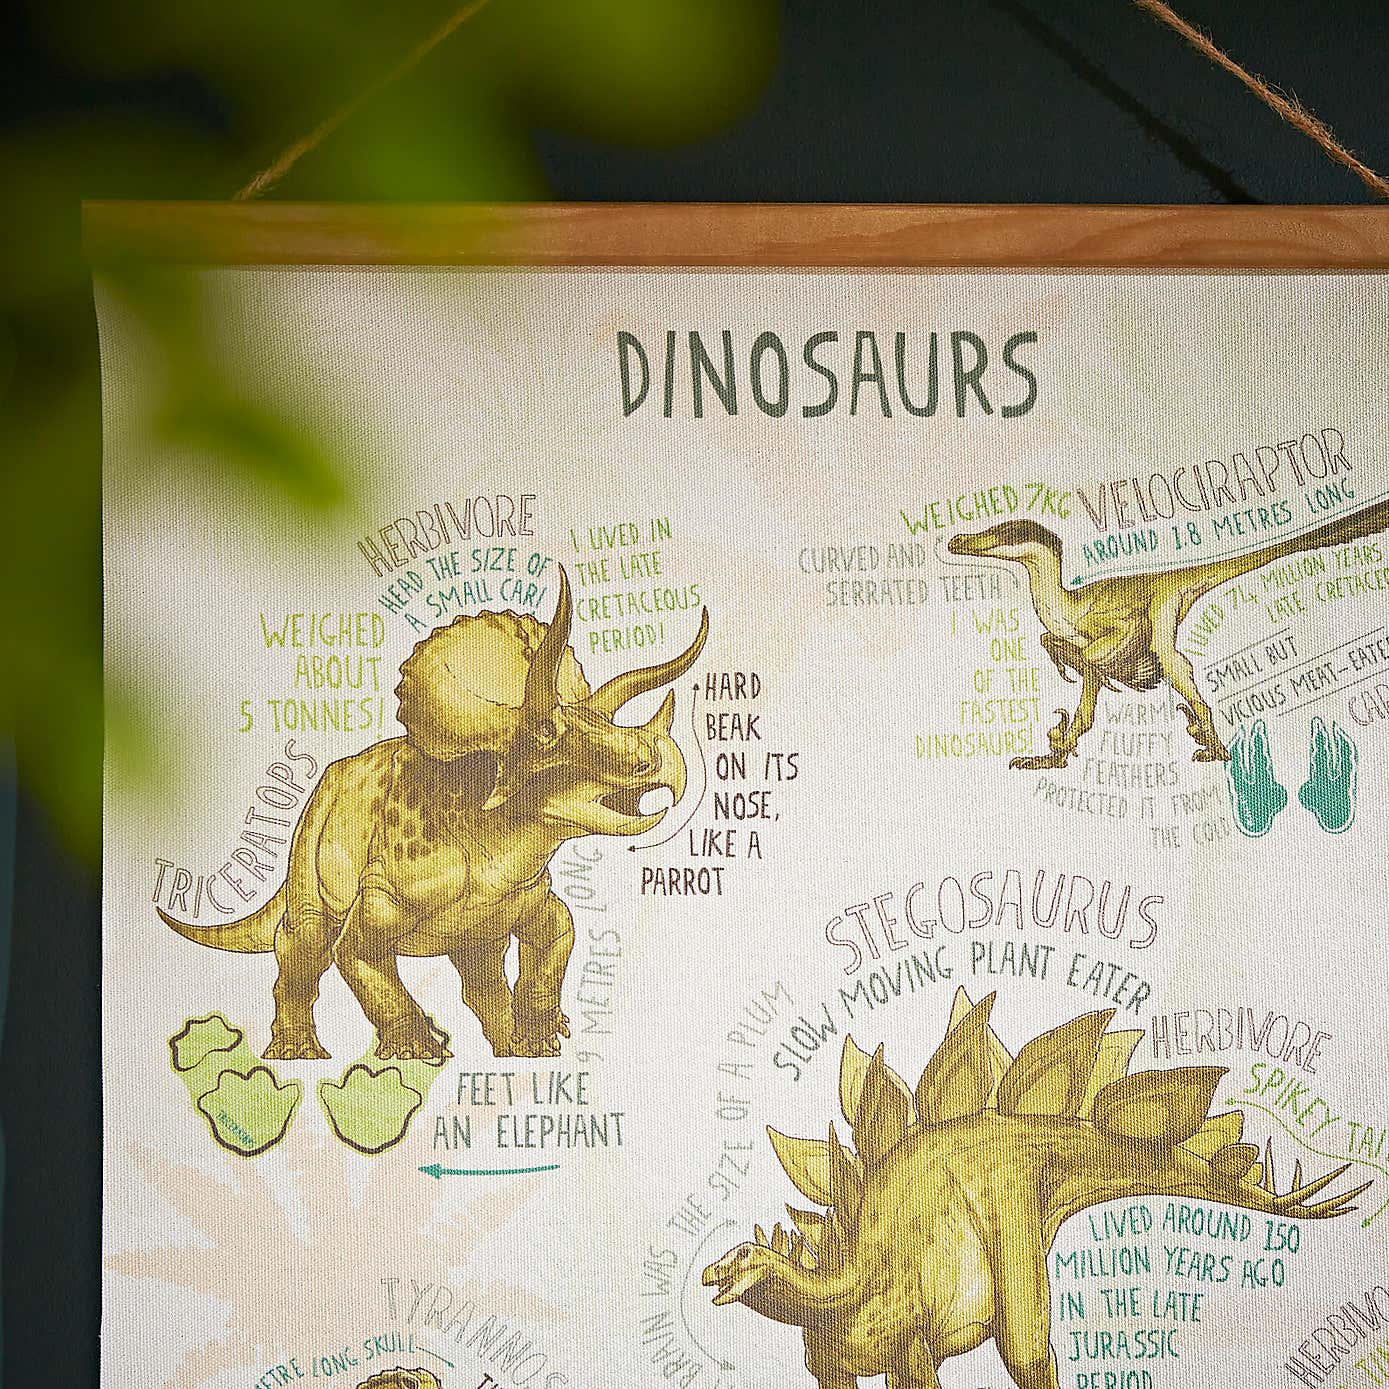 DINOSAURS
HERBIVORE
HEAD THE SIZE OF
A SMALL CAR!
I LIVED IN
THE LATE
CRETACEOUS
PERIOD!
WEIGHED
ABOUT
5 TONNES!
TRICERATOPS
HARD
BEAK
ON ITS
NOSE,
LIKE A
PARROT
9 METRES LONG
FEET LIKE
AN ELEPHANT
WEIGHED 7KG
VELOCIRAPTOR
AROUND 1.8 METRES LONG
CURVED AND
SERRATED TEETH
I WAS
ONE
OF THE
FASTEST
DINOSAURS!
I LIVED 74 MILLION YEARS
LATE CRETACEO
SMALL BUT
VICIOUS MEAT-EATE
CAR
WARM
FLUFFY
FEATHERS
PROTECTED IT FROM
THE COLD
STEGOSAURUS
SLOW MOVING PLANT EATER
HERBIVORE
SPIKEY TAI
BRAIN WAS THE SIZE OF A PLUM
LIVED AROUND 150
MILLION YEARS AGO
IN THE LATE
JURASSIC
PERIOD
TYRANNOS
METRE LONG SKULL
HERBIVO